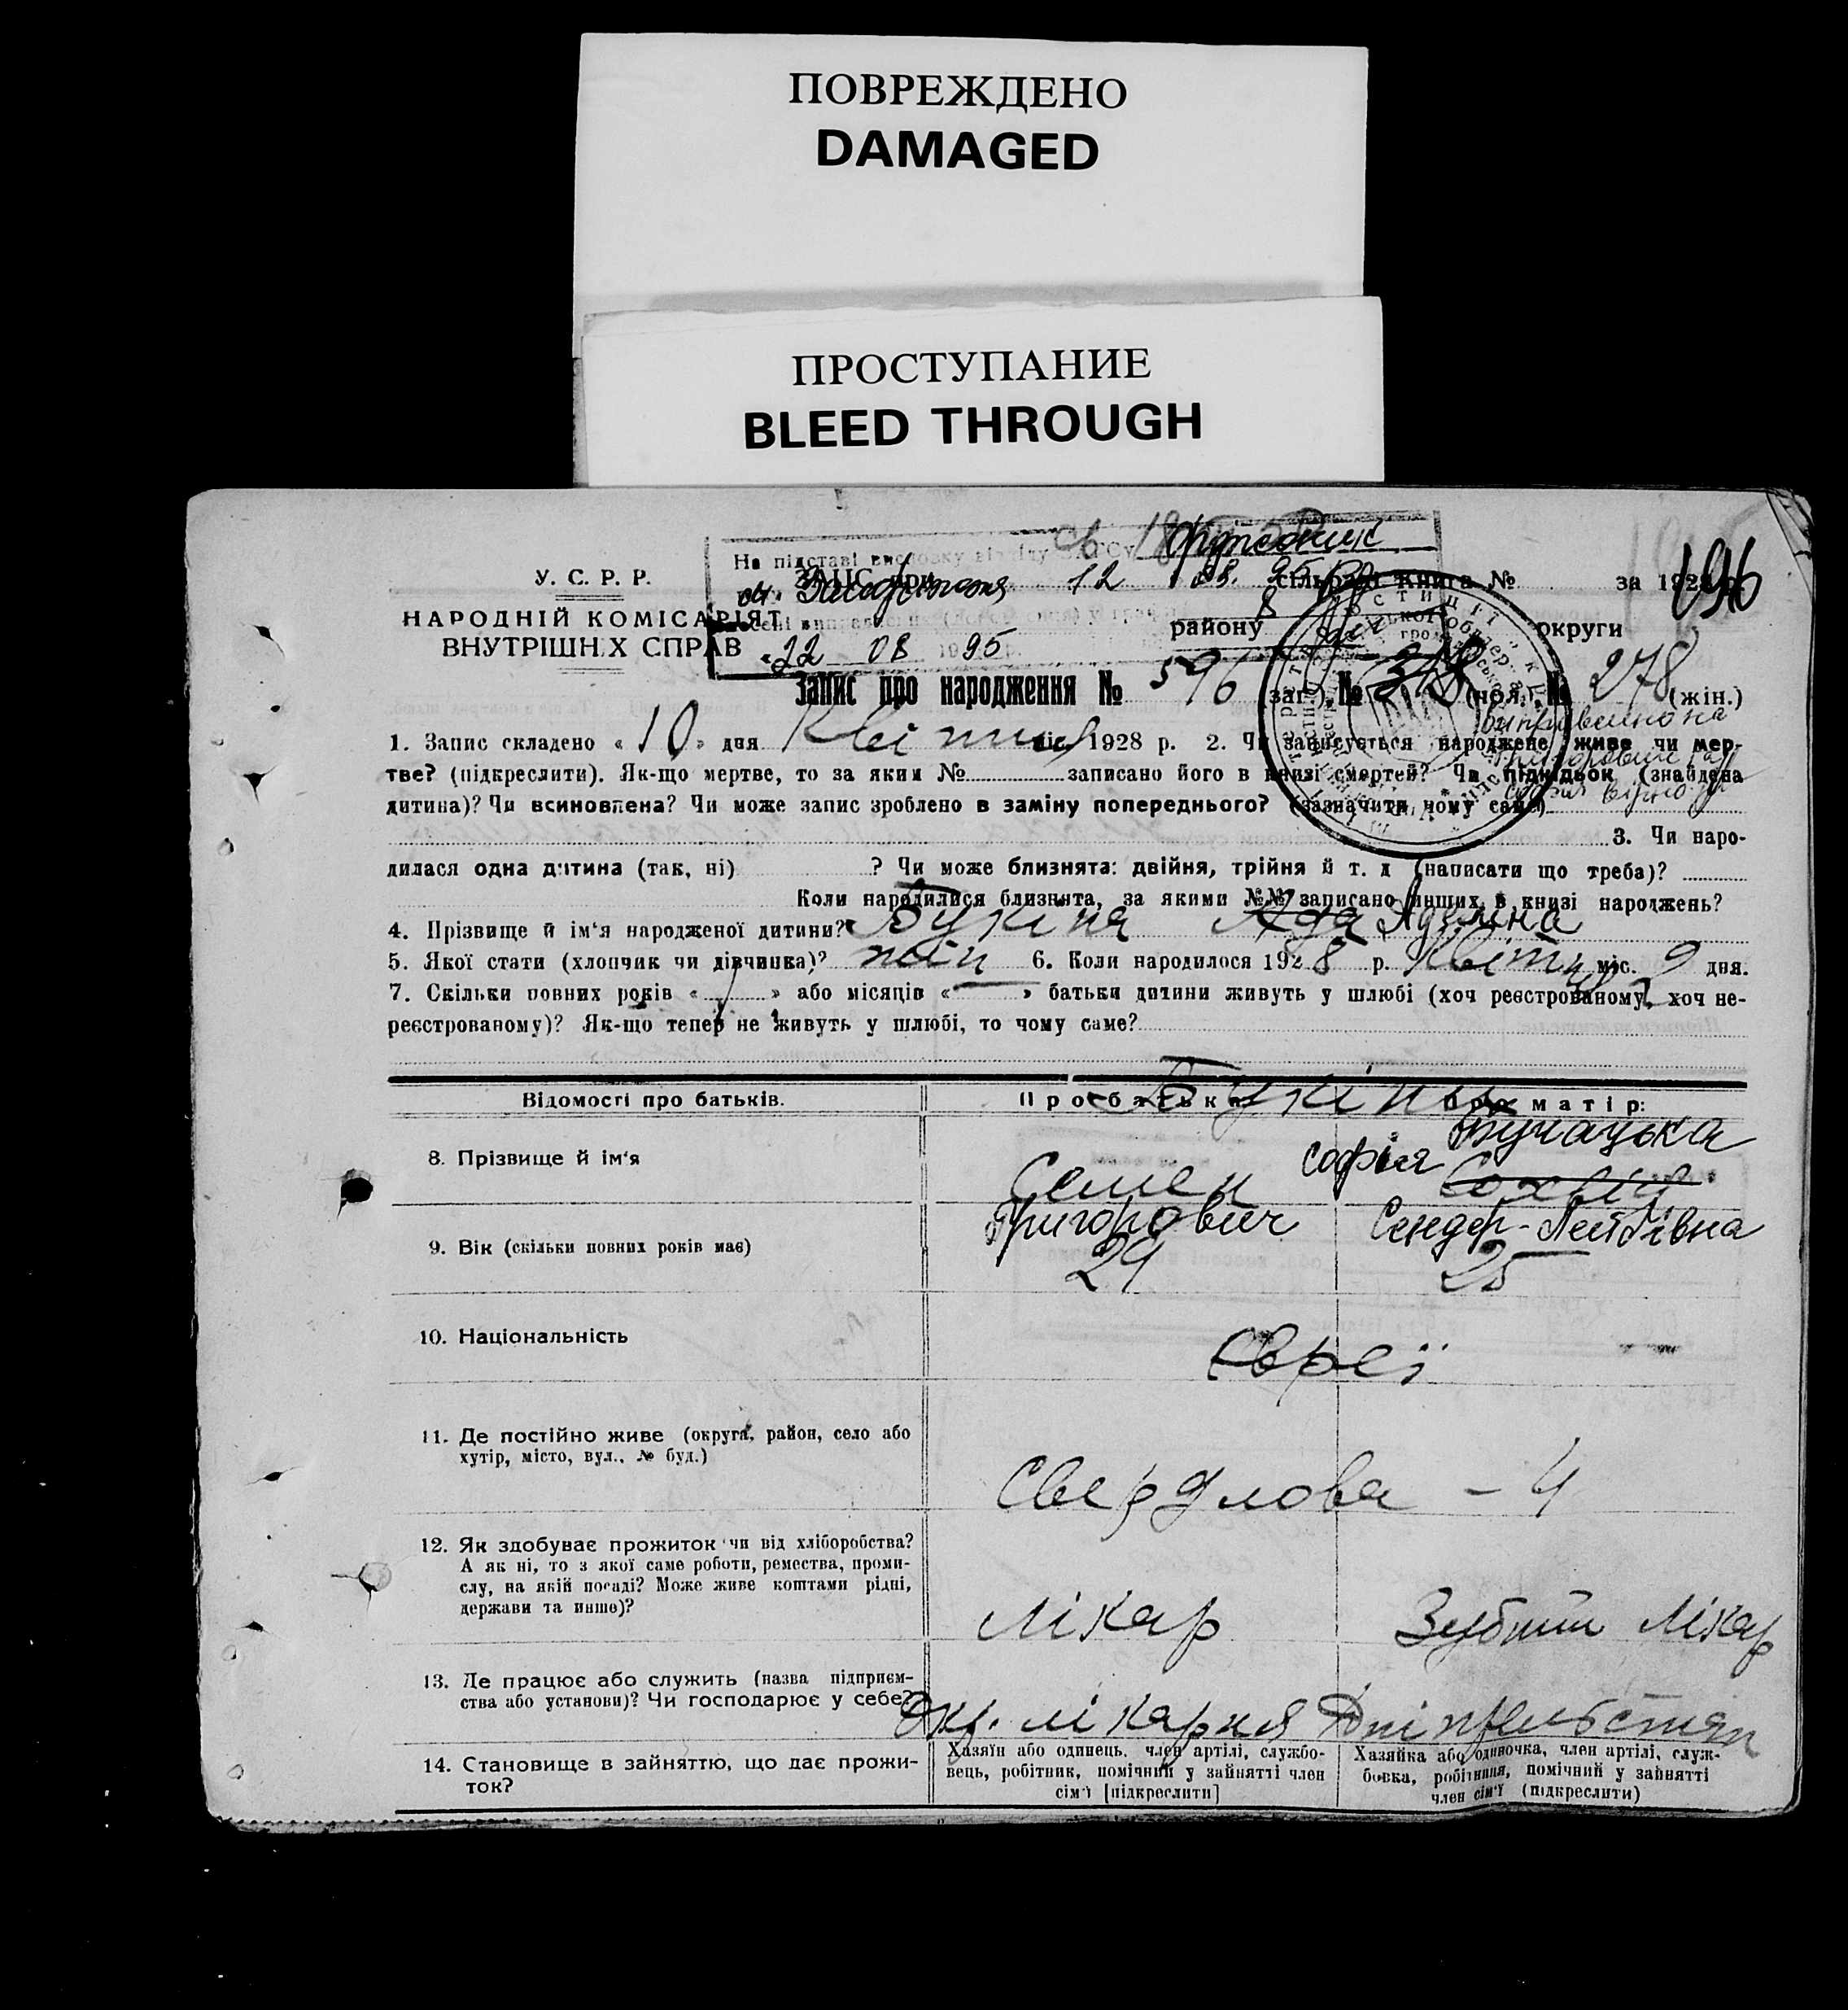 ПОВРЕЖДЕНО
DAMAGED
ПРОСТУПАНИЕ
BLEED THROUGH
На підставі висновку відділу
12 08. 95
внесені виправлення
« 22 08 1995 р.
196
У. С. Р. Р.
НАРОДНІЙ КОМІСАРІЯТ
ВНУТРІШНІХ СПРАВ
ЗАГС при сільради Книга № за 1928 р.
району округи
Запис про народження № 596 (заг.) № 318 (чол.) № 278 (жін.)
виправлено на
Григорович та
Софія вірно
1. Запис складено « 10 » дня Квітня міс. 1928 р. 2. Чи записується народжене живе чи мер-
тве? (підкреслити). Як-що мертве, то за яким № записано його в книзі смертей? Чи підкідьок (знайдена
дитина)? Чи всиновлена? Чи може запис зроблено в заміну попереднього? (зазначити чому саме)
3. Чи наро-
дилася одна дитина (так, ні) ? Чи може близнята: двійня, трійня й т. д (написати що треба)?
Коли народилися близнята, за якими №№ записано инших в книзі народжень?
4. Прізвище й ім'я народженої дитини? Букіна Ада Аделіна
5. Якої стати (хлопчик чи дівчинка)? жін 6. Коли народилося 1928 р. Квітня міс. 9 дня.
7. Скільки повних років « 1 » або місяців « — » батьки дитини живуть у шлюбі (хоч реєстрованому, хоч не-
реєстрованому)? Як-що тепер не живуть у шлюбі, то чому саме?
Відомості про батьків. Про батька: Про матір:
Букіни
Бучацька
8. Прізвище й ім'я Семен Софія
Григорович Сендер-Лейбівна
9. Вік (скільки повних років має) 29 25
10. Національність Євреї
11. Де постійно живе (округа, район, село або
хутір, місто, вул., № буд.)
Свердлова - 4
12. Як здобуває прожиток чи від хліборобства?
А як ні, то з якої саме роботи, ремества, проми-
слу, на якій посаді? Може живе коштами рідні,
держави та инше)?
Лікар Зубний Лікар
13. Де працює або служить (назва підприєм-
ства або установи)? Чи господарює у себе?
Окр. лікарня
14. Становище в зайняттю, що дає прожи-
ток?
Хазяїн або одинець, член артілі, службо-
вець, робітник, помічний у зайнятті член
сім'ї [підкреслити]
Хазяйка або одиночка, член артілі, служ-
бовка, робітниця, помічний у зайнятті
член сім'ї (підкреслити)